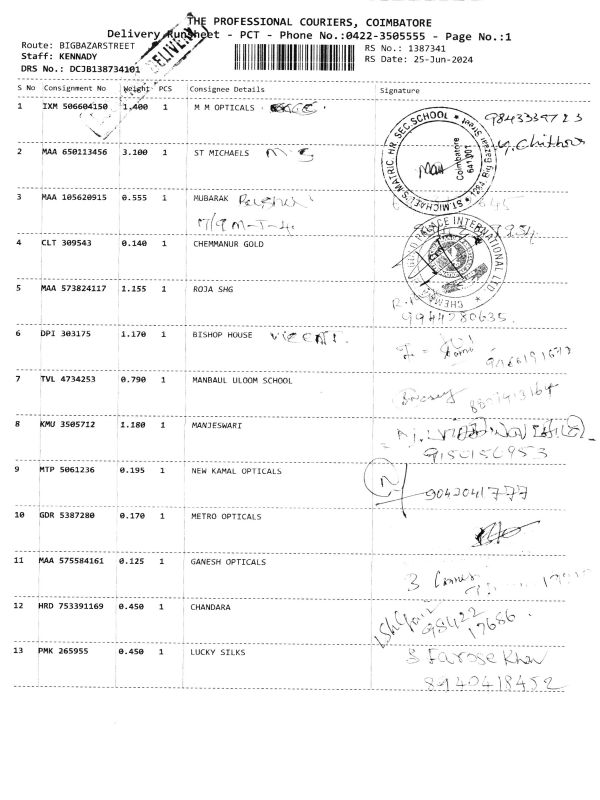 THE PROFESSIONAL COURIERS, COIMBATORE
Delivery Runsheet - PCT - Phone No.:0422-3505555 - Page No.:1
DELIVERY
Route: BIGBAZARSTREET
RS No.: 1387341
Staff: KENNADY
RS Date: 25-Jun-2024
DRS No.: DCJB138734101
S No Consignment No Weight PCS Consignee Details Signature
1 IXM 506604150 1.400 1 M M OPTICALS
2 MAA 650113456 3.100 1 ST MICHAELS M-S
ST.MICHAEL'S MATRIC. HR. SEC.SCHOOL
Coimbatore
641 001
3 MAA 105620915 0.555 1 MUBARAK
4 CLT 309543 0.140 1 CHEMMANUR GOLD
PALACE INTERNATIONAL LTD
5 MAA 573824117 1.155 1 ROJA SHG
9944280635.
6 DPI 303175 1.170 1 BISHOP HOUSE
7 TVL 4734253 0.790 1 MANBAUL ULOOM SCHOOL
8 KMU 3505712 1.180 1 MANJESWARI
9150156953
9 MTP 5061236 0.195 1 NEW KAMAL OPTICALS
9042041777
10 GDR 5387280 0.170 1 METRO OPTICALS
11 MAA 575584161 0.125 1 GANESH OPTICALS
12 HRD 753391169 0.450 1 CHANDARA
98422
17686.
13 PMK 265955 0.450 1 LUCKY SILKS
S Farose Khan
8940418452